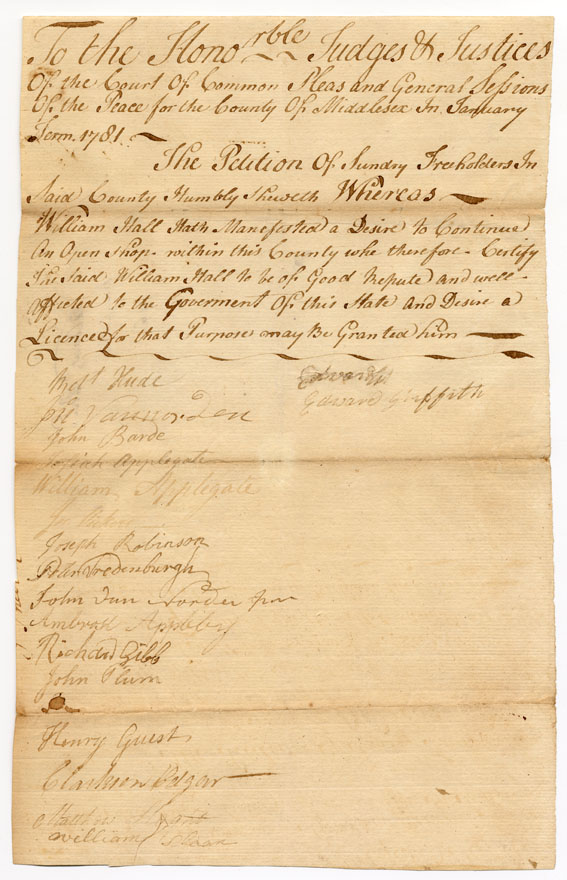 To the Honorble Judges & Justices
Of the Court Of Common Pleas and General Sessions
Of the Peace for the County Of Middlesex In January
Term. 1781.
The Petition Of Sundry Freeholders In
Said County Humbly Sheweth Whereas
William Hall Hath Manefested a Desire to Continue
An Open Shop within this County who therefore Certify
The Said William Hall to be of Good Repute and well
affected to the Goverment Of this State and Desire a
Licence for that Purpose may Be Granted him
Hude
Edward
Vannorden
Edward Griffith
John Barde
Josiah Applegate
William Applegate
Joseph Robinson
Vredenburgh
John Van Norden Jnr
Appleby
Richard Gibb
John Plum
Henry Guest
Clarkson Edgar
William Sloan